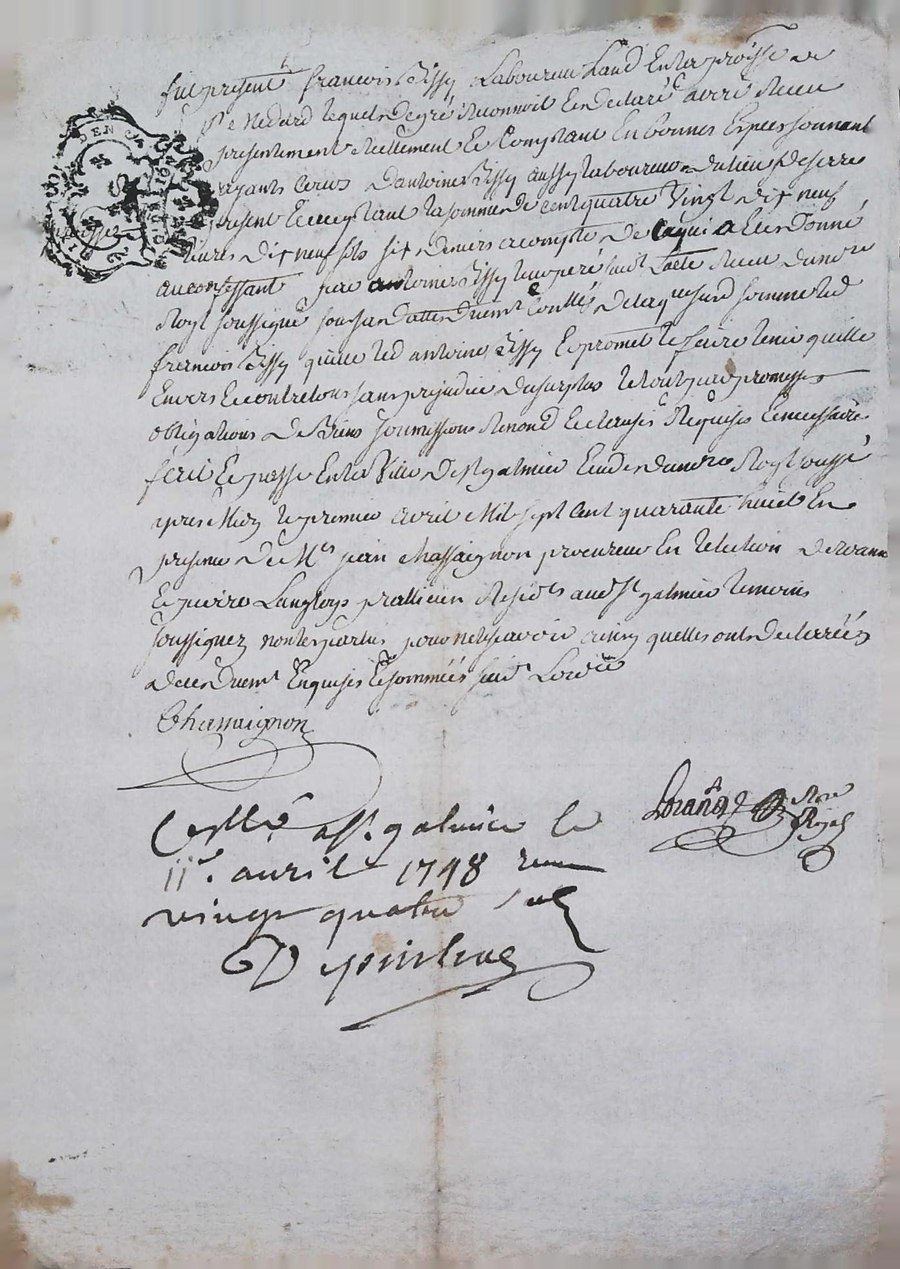 fut présent francois Tissy Laboureur hand En la proisse de
St Medard lequel de gré Reconnoit Et declaré avoir Receu
presentement reellement Et Comptant En bonnes Espèces sonnant
ayants Cours d'antoine Tissy aussy laboureur du lieu de serre
present Et acceptant la somme de cent quatre Vingt dix neuf
livres dix neuf sols six deniers acompte de Ce qui a Eté donné
au confessant par antoine Tissy leur peré suivt L'acte Receu du nore
Royl soussigné sous sa datte duemt Conttlés de laquelle somme led
francois Tissy quitte led antoine Tissy Et promet le faire tenir quitte
Envers Et contre tous sans prejudice du surplus le tout par promesses
obligations de biens soumissions Renond Et clauses Requises Et necessaires
fait Et passé En la Ville de St galmier Etude du nore Royl soussé
apres Midy le premier avril Mil sept cent quarante huict En
presence de Me jean Chassaignon procureur En l'election de roanne
Et pierre Langloys pratticien Residts aud St galmier temoins
soussignez non les parties pour ne sçavoir ainsy quelles ont declarées
de ce duemt Enquises Et sommées suivt L'ordce
Chassaignon
Conttlé a St galmier le
11e. avril 1748 receu
vingt quatre sols
nore
Royal